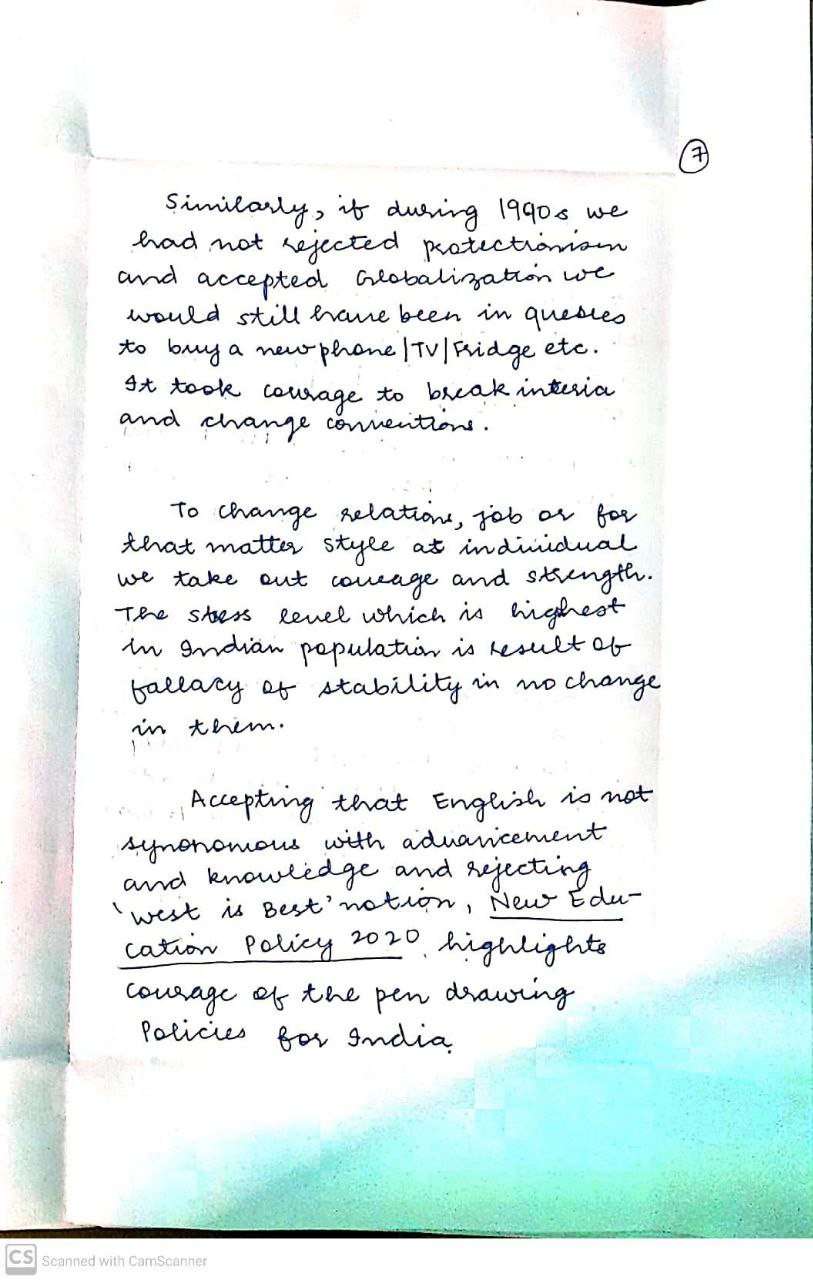 7
Similarly, if during 1990s we
had not rejected protectionism
and accepted Globalization we
would still have been in queues
to buy a new phone/TV/Fridge etc.
It took courage to break interia
and change conventions.
To change relations, job or for
that matter style at individual
we take out courage and strength.
The stess level which is highest
in Indian population is result of
fallacy of stability in no change
in them.
Accepting that English is not
synonomous with advancement
and knowledge and rejecting
'West is Best' notion, New Edu-
cation Policy 2020, highlights
courage of the pen drawing
Policies for India.
CS Scanned with CamScanner